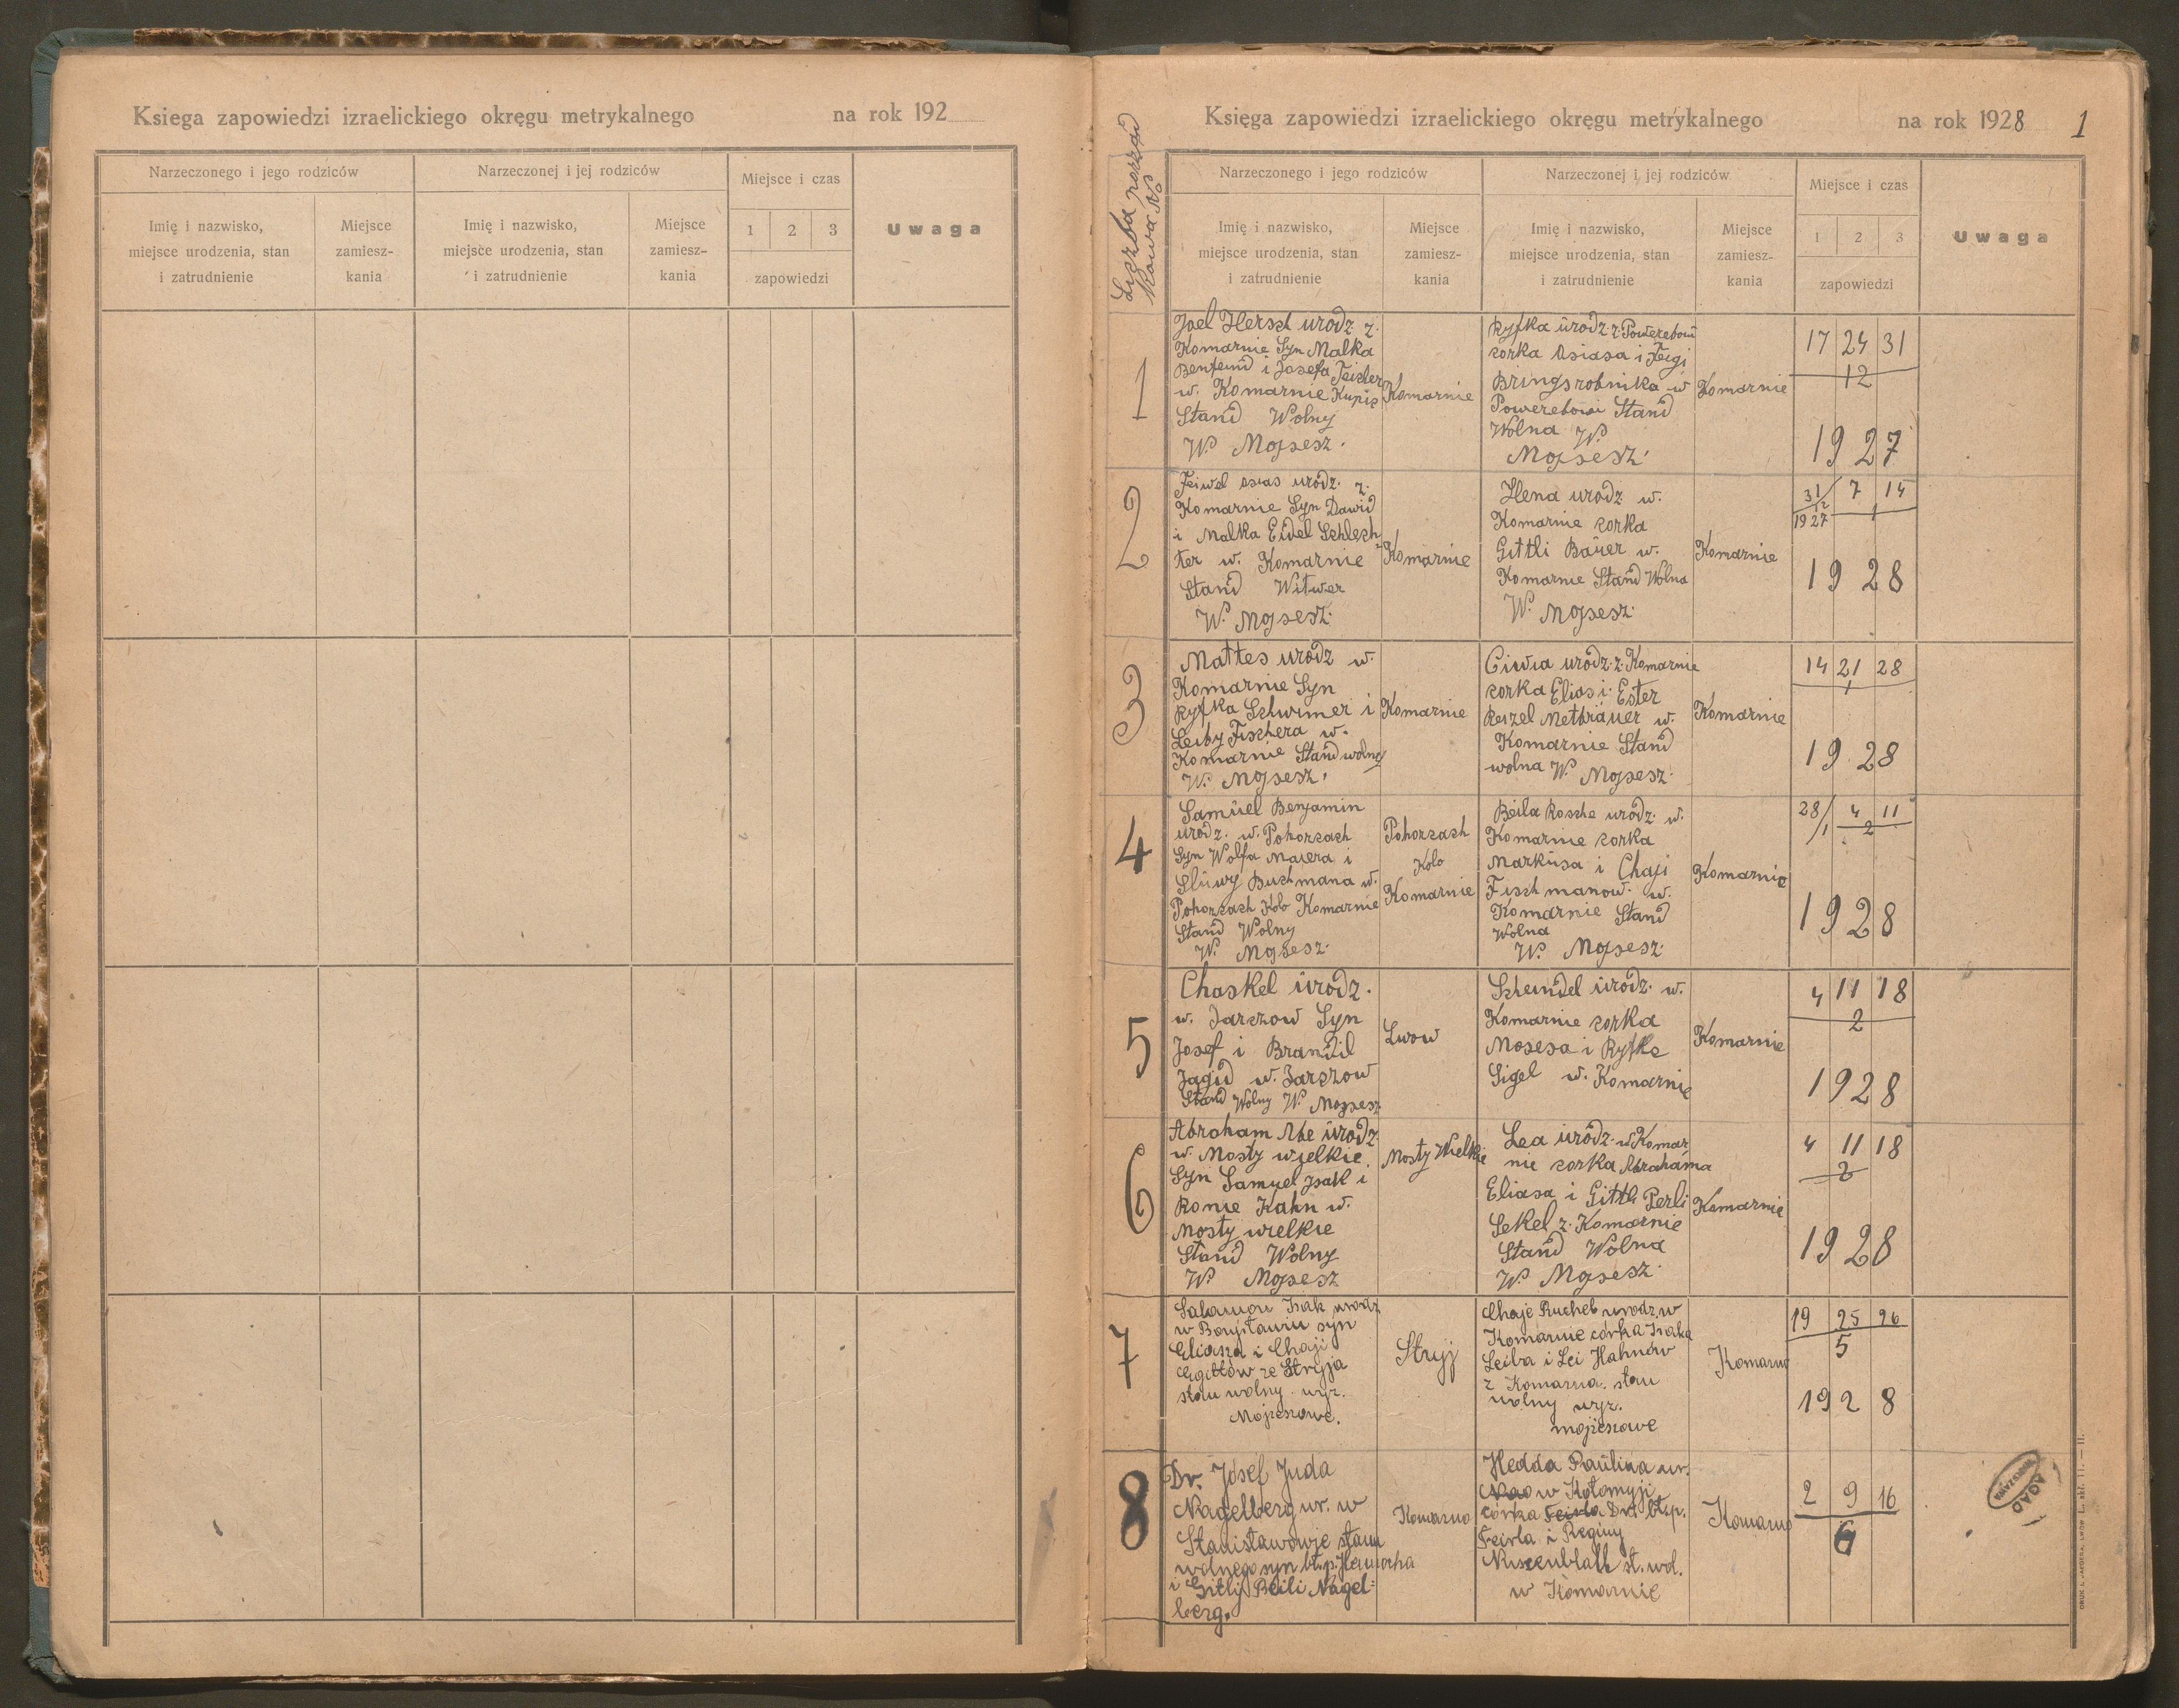 Ksiega zapowiedzi izraelickiego okręgu metrykalnego na rok 192
Narzeczonego i jego rodziców
Narzeczonej i jej rodziców
Miejsce i czas
Uwaga
Imię i nazwisko,
miejsce urodzenia, stan
i zatrudnienie
Miejsce
zamiesz-
kania
Imię i nazwisko,
miejsce urodzenia, stan
i zatrudnienie
Miejsce
zamiesz-
kania
1 2 3
zapowiedzi
Księga zapowiedzi izraelickiego okręgu metrykalnego na rok 1928 1
Liczba porząd
kowa No
Narzeczonego i jego rodziców
Narzeczonej i jej rodziców
Miejsce i czas
Uwaga
Imię i nazwisko,
miejsce urodzenia, stan
i zatrudnienie
Miejsce
zamiesz-
kania
Imię i nazwisko,
miejsce urodzenia, stan
i zatrudnienie
Miejsce
zamiesz-
kania
1 2 3
zapowiedzi
1
Joel Hersch urodz z.
Komarnie Syn Malka
i Josefa
w. Komarnie Kupie
Stand Wolny
W. Mojsesz.
Komarnie
Ryfka urodz z.
corka Osiasa i Feigi
w
Stand
Wolna W.
Mojsesz.
Komarnie
17 24 31
12
1927
2
Feiwel Osias urodz. z.
Komarnie Syn Dawid
i Malka Eidel Schlech
ter w. Komarnie
Stand Witwer
W. Mojsesz.
Komarnie
Hena urodz w.
Komarnie corka
Gittli Bauer w.
Komarnie Stand Wolna
W. Mojsesz.
Komarnie
31/12 7 14
1927 1
1928
3
Mattes urodz w.
Komarnie Syn
Ryfka Schwimer i
Leiby Fischera w.
Komarnie Stand wolny
W. Mojsesz.
Komarnie
Ciwia urodz. z. Komarnie
corka Elias i Ester
Reizel Metbrauer w.
Komarnie Stand
wolna W. Mojsesz.
Komarnie
14 21 28
1
1928
4
Samuel Benjamin
urodz. w. Pohorcach
Syn Wolfa Maiera i
Sluwy Buchmana w.
Pohorcach Kolo Komarnie
Stand Wolny
W. Mojsesz.
Pohorcach
Kolo
Komarnie
Beila Rosche urodz. w.
Komarnie corka
Markusa i Chaji
Fischmanow. w.
Komarnie Stand
Wolna
W. Mojsesz.
Komarnie
28/1 4 11
2
1928
5
Chaskel urodz.
w. Jarczow Syn
Josef i Brandil
Jagid w. Jarczow
Stand Wolny W. Mojsesz
Lwow
Scheindel urodz. w.
Komarnie corka
Mosesa i Ryfke
Sigel w. Komarnie
Komarnie
4 11 18
2
1928
6
Abraham Abe urodz.
w. Mosty wielkie.
Syn Samuel Isak i
Ronie Kahn w.
Mosty wielkie
Stand Wolny
W. Mojsesz
Mosty Wielkie
Lea urodz. w Komar
nie corka Abrahama
Eliasa i Gittli Perli
Sekel z. Komarnie
Stand Wolna
W. Mojsesz.
Komarnie
4 11 18
2
1928
7
Salamon Isak urodz
w Borysławiu syn
Eliasza i Chaji
ze Stryja
stan wolny wyz.
Mojżeszowe.
Stryj
Chaje Ruchel urodz. w
Komarnie córka Isaka
Leiba i Lei Hahnów
z Komarna. stan
wolny wyz.
mojżeszowe
Komarno
19 25 26
5
1928
8
Dr. Józef Juda
Nagelberg ur. w
Stanisławowie stanu
wolnego syn bł. p.
i Gitli Beili Nagel=
berg.
Komarno
Hedda Paulina ur.
w Kołomyji
córka Dr. bł. p.
Feivla i Reginy
st. wol.
w Komarnie
Komarno
2 9 16
6
AGAD
WARSZAWA